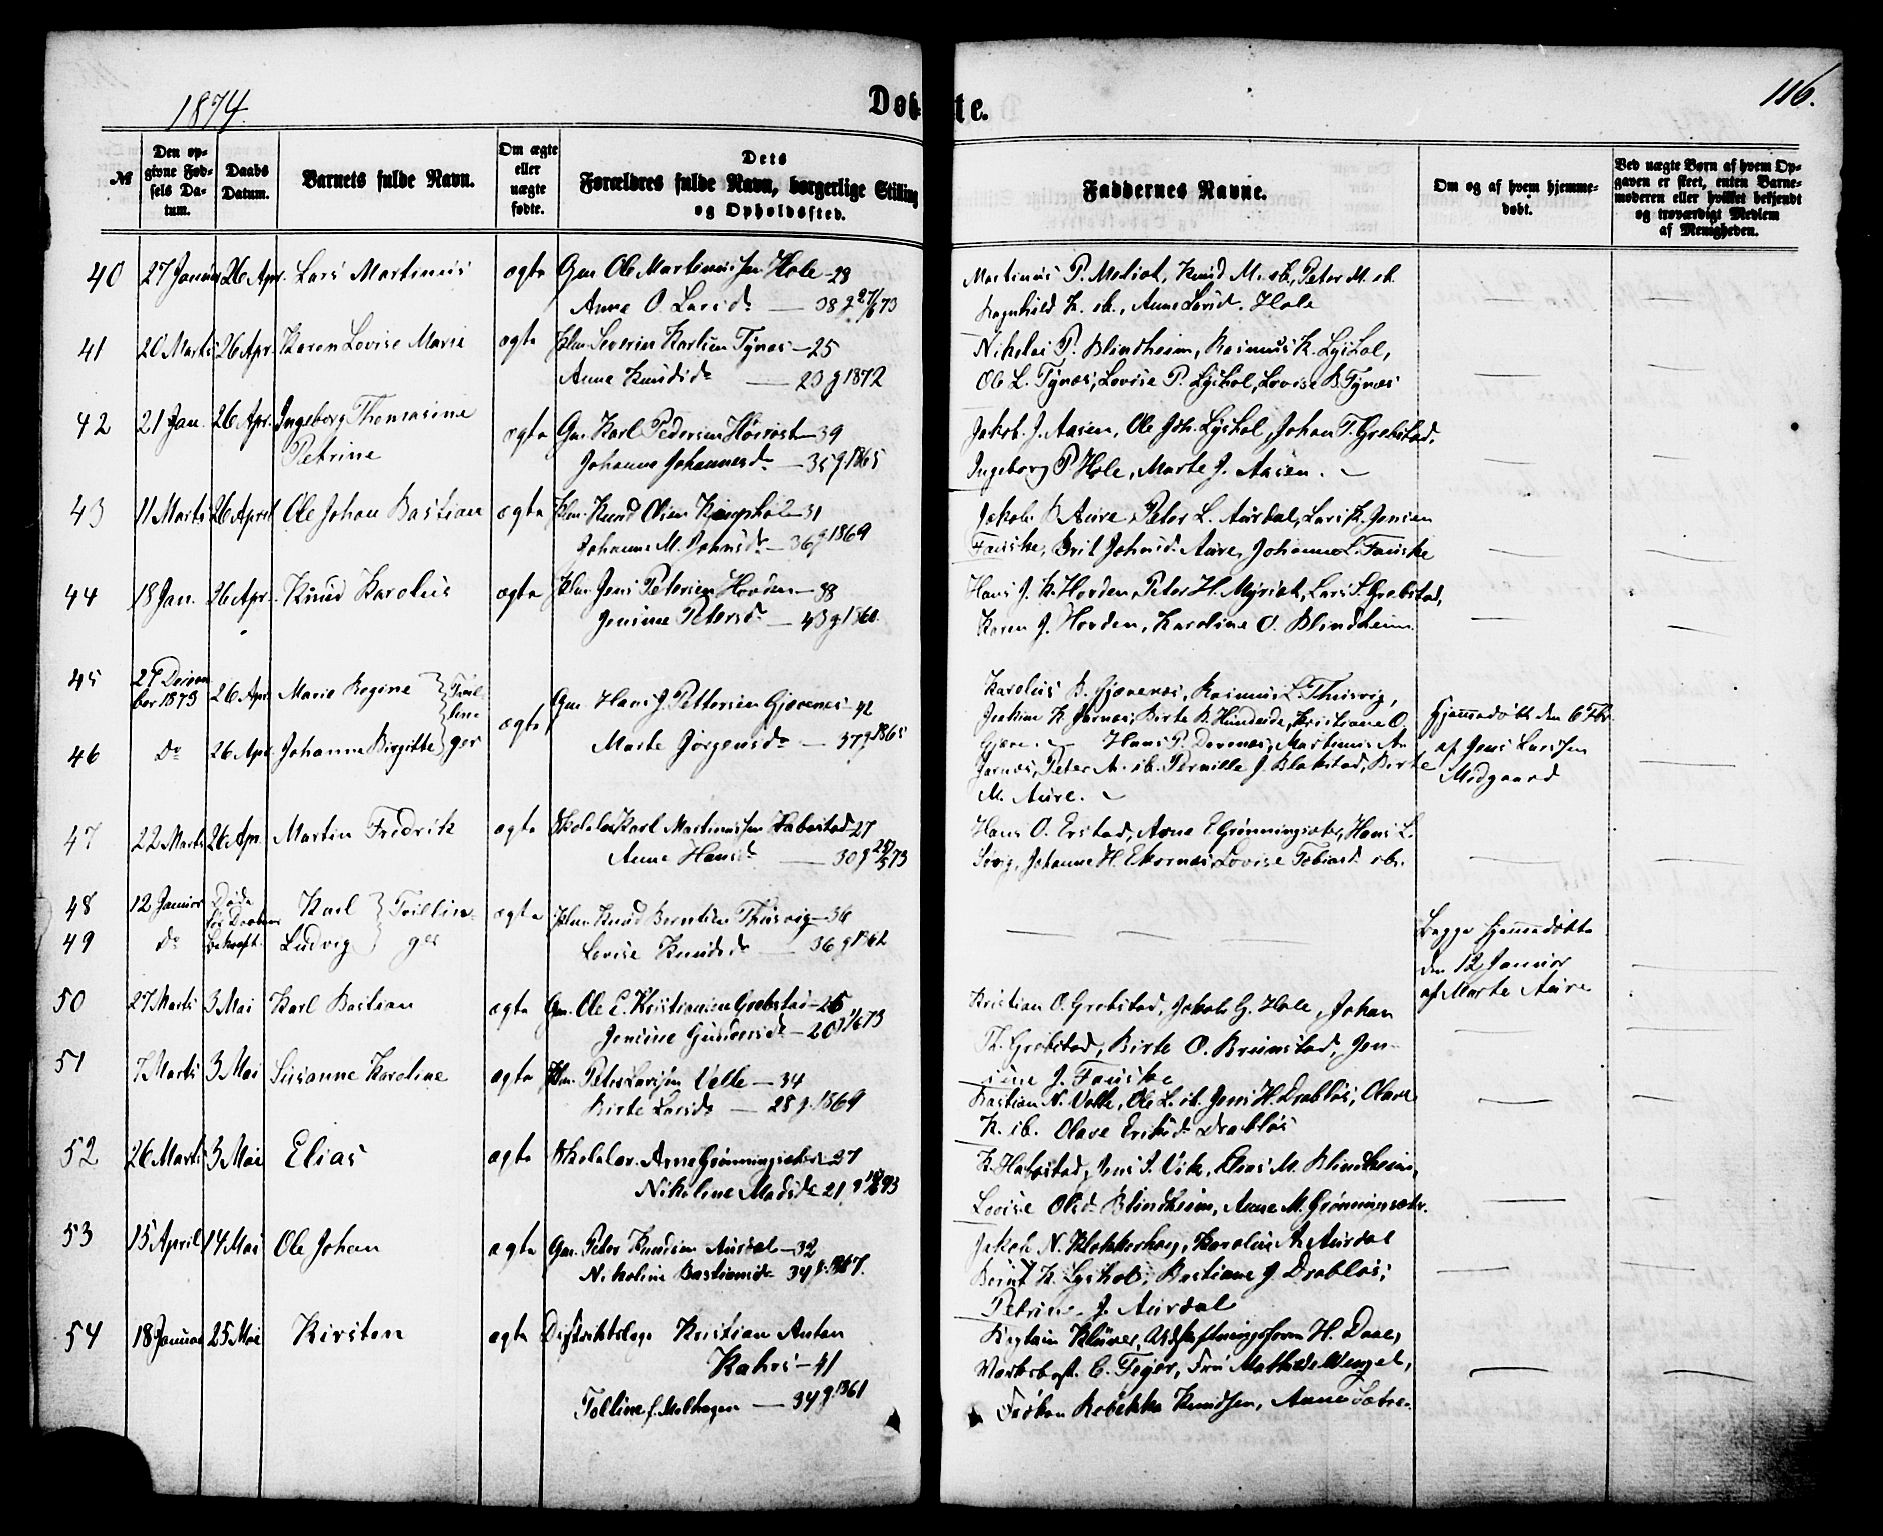 1874.
Døb te.
116.
№
Den op-
givne Fød-
sels Da-
tum.
Daabs
Datum.
Barnets fulde Navn.
Om ægte
eller
uægte
fødte.
Dets
Forældres fulde Navn, borgerlige Stilling
og Opholdssted.
Faddernes Navne.
Om og af hvem hjemme-
døbt.
Ved uægte Børn af hvem Op-
gaven er skeet, enten Barne-
moderen eller hvilket bekjendt
og troværdigt Medlem
af Menigheden.
40 27 Januar 26 Apr. Lars Martinus ægte Gm. Ole Martinussen Hole - 28
Anne O. Larsdr — 38 g 27/6 73
Martinus P. Melsæt, Knud M. sb., Peter M. sb.
Ragnhild K. sb., Anne Larsd. Hole
41 20 Marts 26 Apr. Karen Lovise Marie ægte Severin Karlsen Tynæs - 25
Anne Knudsdr — 23 g 1872
Nikolai P. Blindheim, Rasmus K. Lyshol,
Ole L. Tynæs, Lovise P. Lyshol, Lovise B. Tynæs
42 21 Jan. 26 Apr. Ingeborg Thomasine
Petrine
ægte Gm. Karl Pedersen - 39
Johanne Johannesdr — 35 g 1865
Jakob J. Aasen, Ole Joh. Lyshol, Johan T. Grebstad,
Ingeborg P. Hole, Marte J. Aasen.
43 11 Marts 26 April Ole Johan Bastian ægte Knud Olsen - 31
Johanne M. Johnsdr — 36 g 1869
Jakob B. Aure, Peter L. Aurdal, Lars K. Jensen
Fauske, Brit Johnsd. Aure, Johanne L. Fauske
44 18 Jan. 26 Apr. Knud Karolus ægte Jens Petersen Hovden - 38
Jensine Petersdr — 43 g 1860.
Hans J. K. Hovden, Peter H. Myrset, Lars S. Grebstad,
Karen J. Hovden, Karoline O. Blindheim.
45 27 Decem
ber 1873 26 Apr. Marie Regine Tvil-
linger
46 Do 26 Apr. Johanne Birgitte
ægte Gm. Hans J. Pettersen Gjævenes - 42
Marte Jørgensdr — 37 g 1865
Karolus B. Gjævenes, Rasmus L. Thusvig,
Joakim K. Jarnæs, Birte B. Hundeide, Kristiane O.
Gjære. Hans P. Devenæs, Martinus A.
Jarnæs, Peter A. sb. Pernille J. Blakstad, Birte
M. Aure.
Hjemmedøbte den 6 Fbr.
af Jens Larssen
Midgaard
47 22 Marts 26 Apr. Martin Fredrik ægte Skolelær. Karl Martinussen Habostad 27
Anne Hansdr — 30 g 25/5 73
Hans O. Erstad, Arne E. Grønningsæter, Hans L.
Søvig, Johanne H. Ekornæs, Lovise Tobiasd. sb.
48 12 Januar Døde
før Daabens
Bekræft. Karl Tvillin-
49 Do Ludvig ger
ægte Knud Berntsen Thusvig - 36
Lovise Knudsdr 36 g 1862
Begge hjemmedøbte
den 12 Januar
af Marte Aure
50 27 Marts 3 Mai Karl Bastian ægte Gm. Ole E. Kristiansen Grebstad - 26
Jensine Gundersdr - 20 g 1/6 73
Kristian O. Grebstad, Jakob G. Hole, Johan
Th. Grebstad, Birte O. Brunstad, Jen-
sine J. Fauske
51 7 Marts 3 Mai Susanne Karoline ægte Peter Larsen Velle - 34
Birte Larsdr — 28 g. 1869
Bastian N. Velle, Ole L. sb. Jens H. Drabløs, Olave
K. sb. Olave Eriksd. Drabløs
52 26 Marts 3 Mai Elias ægte Skolelær. Arne Grønningsæter 27
Nikoline Madsdr 21 g 73
K. Habostad, Jens S. Vik, Elias M. Blindheim,
Lovise Olsdr Blindheim, Anne M. Grønningsæter.
53 15 April 14 Mai Ole Johan ægte Gm. Peter Knudsen Aursdal - 32
Nikoline Bastiansdr 34 g. 1867.
Jakob N. Klokkerhaug, Karolus A. Aurdal
Bernt K. Lyshol, Bastiane J. Drabløs,
Petrine J. Aurdal
54 18 Januar 25 Mai Kirsten ægte Distriktslæge Kristian Anton
Kahrs - 41
Tolline f. Molhagen — 34 g 1861
Kaptain Klüver, H. Daae,
C. Fru Mathilde Wenzel,
Frøken Rebekka Knudsen, Anne Sætre.